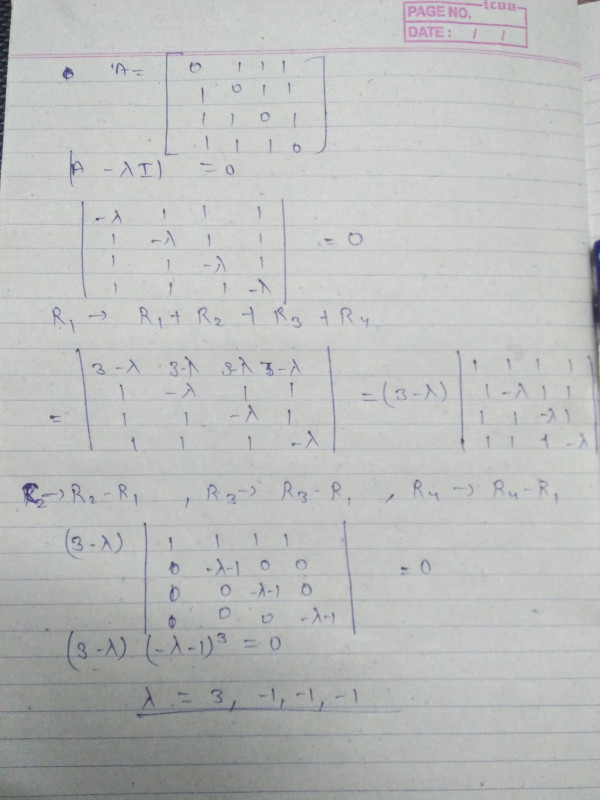 PAGE NO.
DATE: / /
A = [ 0 1 1 1
1 0 1 1
1 1 0 1
1 1 1 0 ]
|A - λI| = 0
| -λ 1 1 1 |
| 1 -λ 1 1 | = 0
| 1 1 -λ 1 |
| 1 1 1 -λ |
R₁ → R₁ + R₂ + R₃ + R₄
| 3-λ 3-λ 3-λ 3-λ | | 1 1 1 1 |
| 1 -λ 1 1 | = (3-λ) | 1 -λ 1 1 |
= | 1 1 -λ 1 | | 1 1 -λ 1 |
| 1 1 1 -λ | | 1 1 1 -λ |
R₂ → R₂ - R₁ , R₃ → R₃ - R₁ , R₄ → R₄ - R₁
(3-λ) | 1 1 1 1 |
| 0 -λ-1 0 0 | = 0
| 0 0 -λ-1 0 |
| 0 0 0 -λ-1 |
(3-λ) (-λ-1)³ = 0
λ = 3, -1, -1, -1